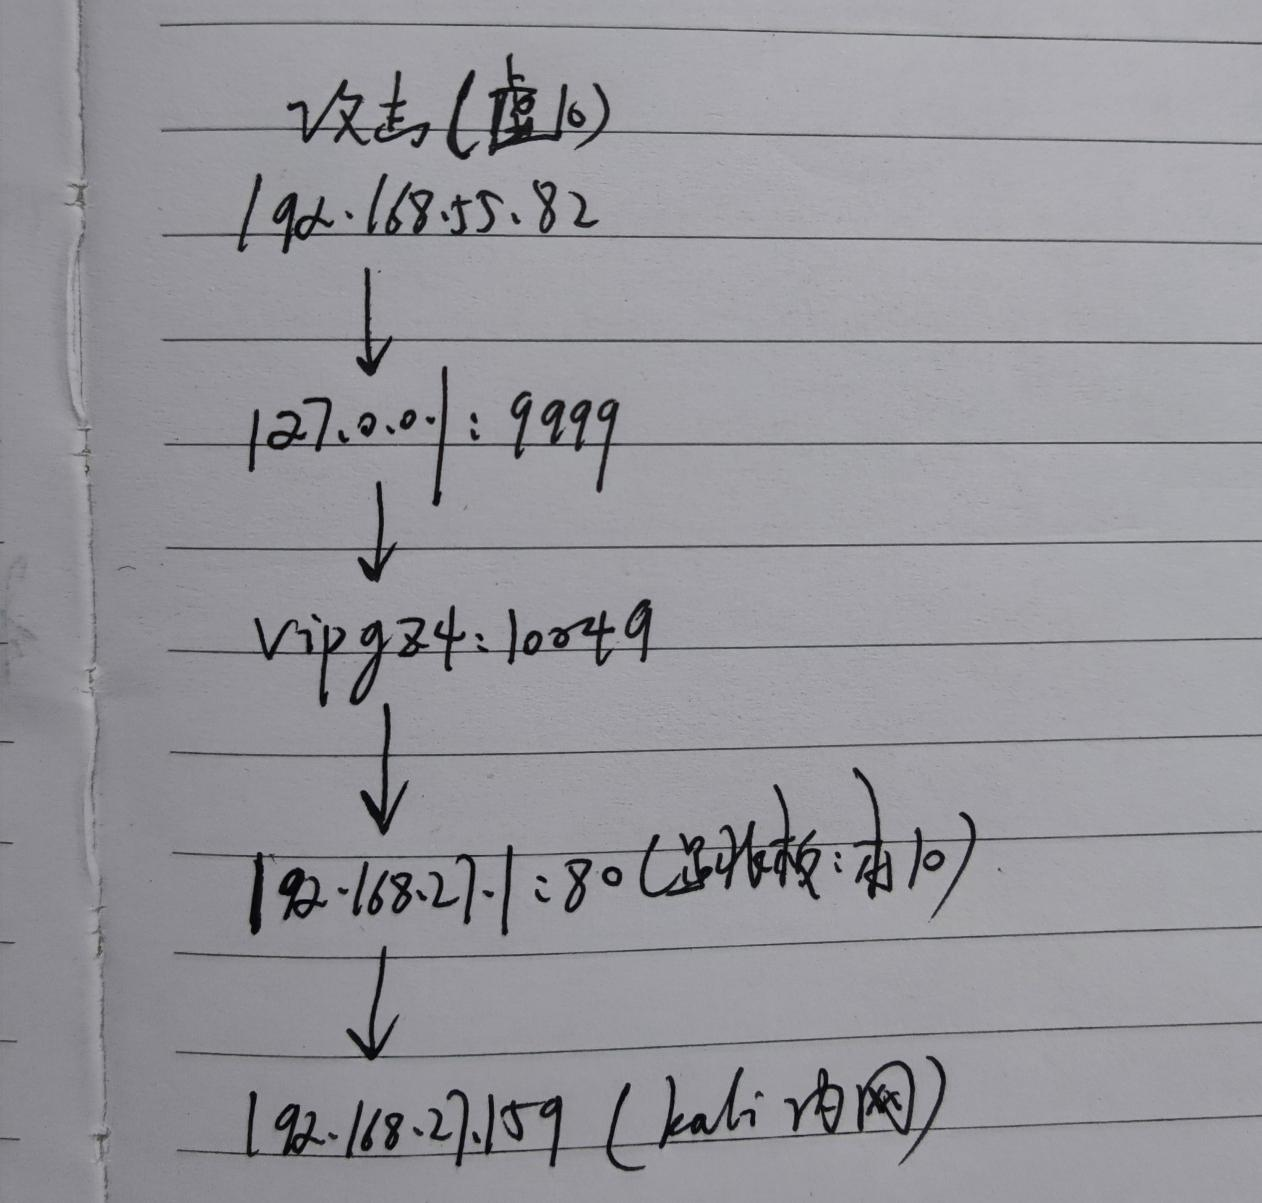 攻击(虚10)
192.168.55.82
127.0.0.1:9999
vipgz4:10049
192.168.27.1:80(跳板:本10)
192.168.27.159 (kali内网)